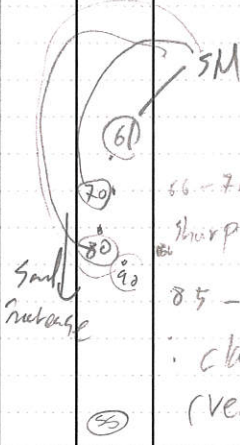 SM
61
70
66 - 7
sharp
80
90
Sand
increase
85 -
cla
(ve